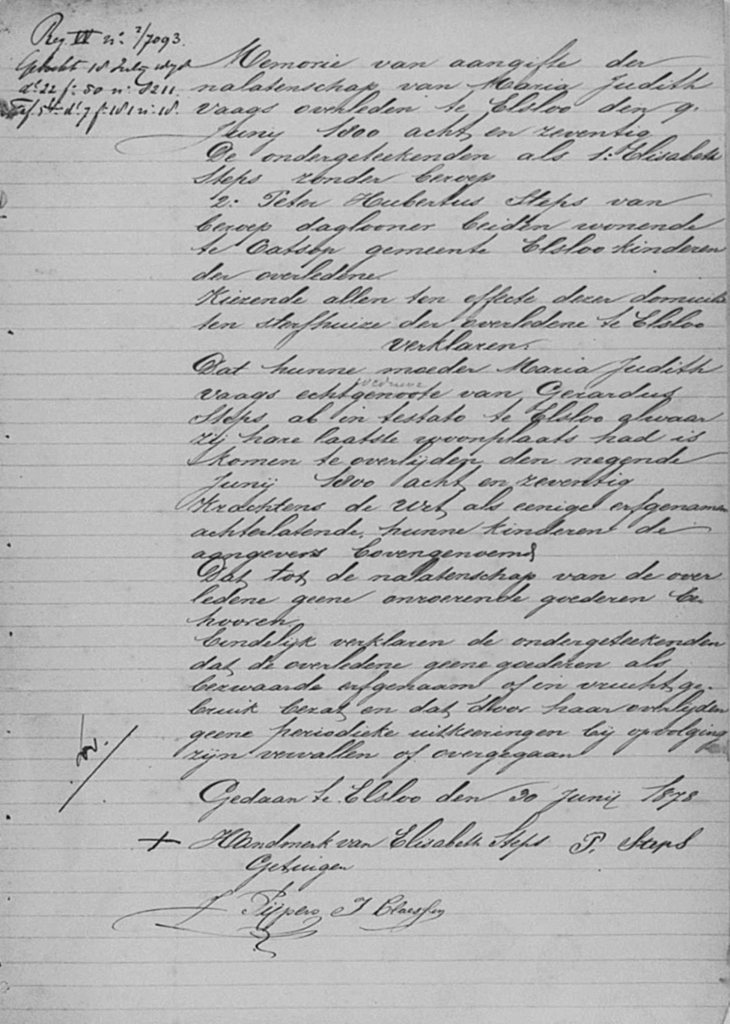 Reg IV nº 2/7093.
Geboekt 18 July 1878
d: 22 fº 50 nº 8211.
Taf. 5bis dº 7 fº 181 nº 18.
Memorie van aangifte der
nalatenschap van Maria Judith
Vaags overleden te Elsloo den 9.
Junij 1800 acht en zeventig
De ondergeteekenden als 1: Elisabeth
Steps zonder beroep
2: Peter Hubertus Steps van
beroep daglooner beiden wonende
te Catsop gemeente Elsloo kinderen
der overledene.
Kiezende allen ten effecte dezer domicilie
ten sterfhuize der overledene te Elsloo
verklaren.
Dat hunne moeder Maria Judith
weduwe
Vaags echtgenoote van Gerardus
Steps, ab in testato te Elsloo alwaar
zij hare laatste woonplaats had is
komen te overlijden den negende
Junij 1800 acht en zeventig
Krachtens de Wet als eenige erfgenamen
achterlatende, hunne kinderen de
aangevers bovengenoemd
Dat tot de nalatenschap van de over
ledene geene onroerende goederen be-
hooren.
Eindelijk verklaren de ondergeteekenden
dat de overledene geene goederen als
bezwaarde erfgenaam of in vruchtge-
bruik bezat en dat door haar overlijden
geene periodieke uitkeeringen bij opvolging
zijn vervallen of overgegaan
Gedaan te Elsloo den 30 Junij 1878
+ Handmerk van Elisabeth Steps P. Steps
Getuigen
Pijpers J Claessen